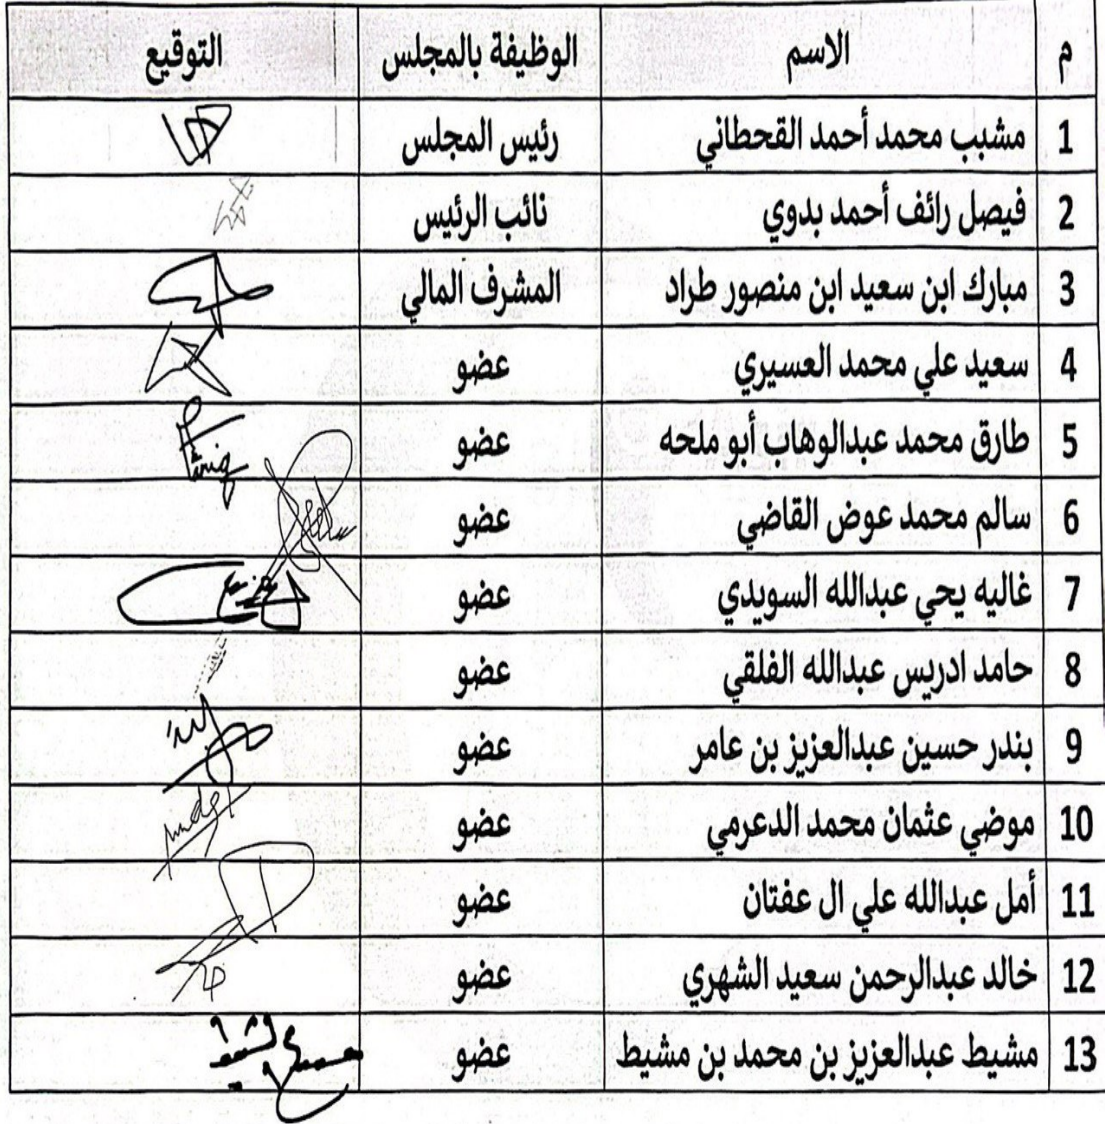 م الاسم الوظيفة بالمجلس التوقيع
1 مشبب محمد أحمد القحطاني رئيس المجلس
2 فيصل رائف أحمد بدوي نائب الرئيس
3 مبارك ابن سعيد ابن منصور طراد المشرف المالي
4 سعيد علي محمد العسيري عضو
5 طارق محمد عبدالوهاب أبو ملحه عضو
6 سالم محمد عوض القاضي عضو
7 غاليه يحي عبدالله السويدي عضو
8 حامد ادريس عبدالله الفلقي عضو
9 بندر حسين عبدالعزيز بن عامر عضو
10 موضي عثمان محمد الدعرمي عضو
11 أمل عبدالله علي ال عفتان عضو
12 خالد عبدالرحمن سعيد الشهري عضو
13 مشيط عبدالعزيز بن محمد بن مشيط عضو